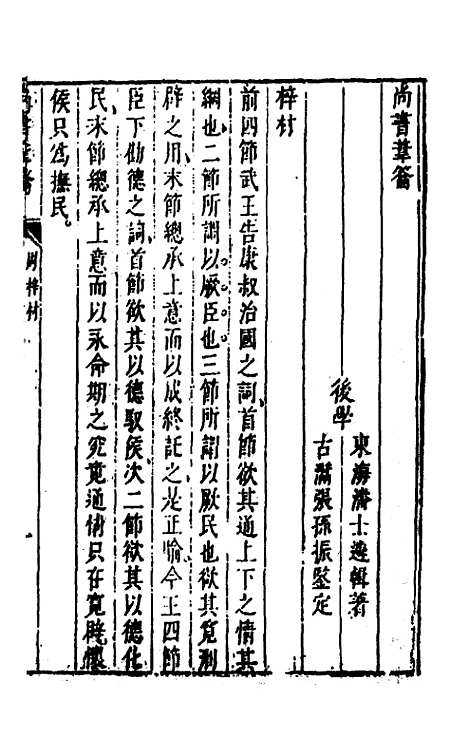 尚書葦籥
後學
東海潘士遴輯著
古潞張孫振鑒定
梓材
前四節武王告康叔治國之詞首節欲其通上下之情其
綱也二節所謂以厥臣也三節所謂以厥民也欲其寬刑
辟之用末節總承上意而以成終託之是正喻今王四節
臣下勸德之詞首節欲其以德馭侯次二節欲其以德化
民末節總承上意而以永命期之究竟通情只在寬賤懷
侯只爲撫民
周梓材